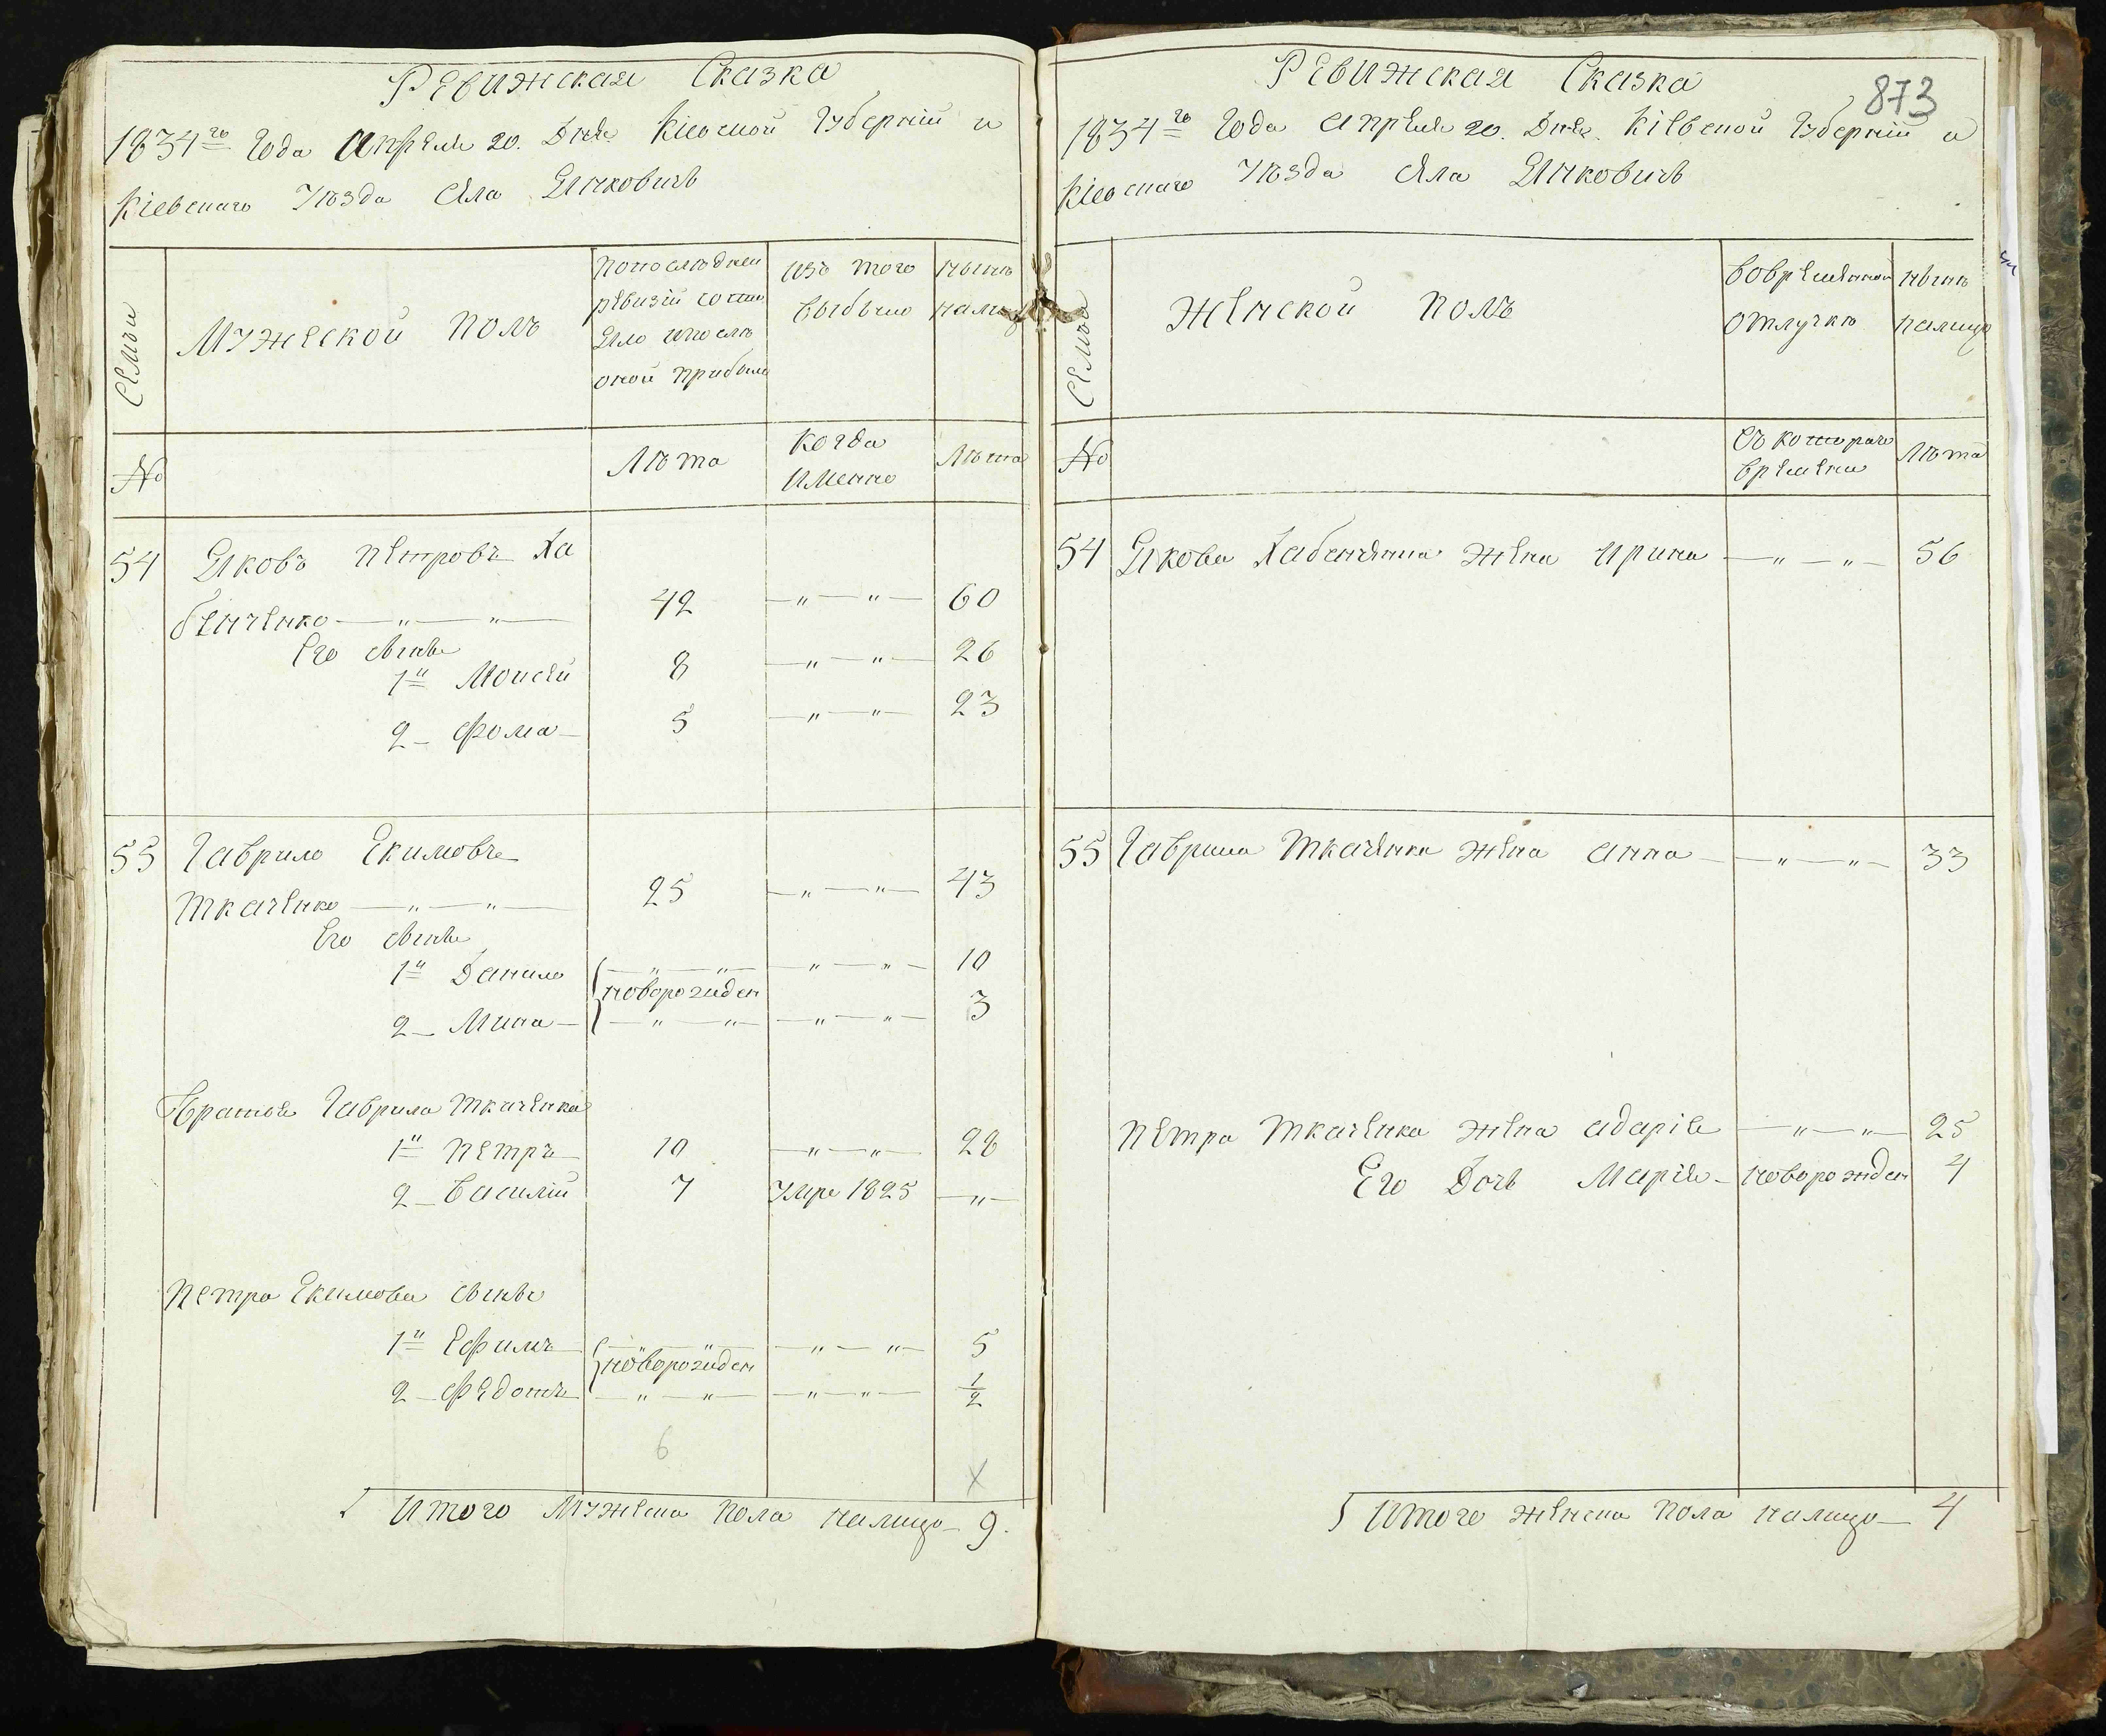 Ревижская Сказка
1834го Года Апреля 20. Дня Кіевской Губерніи и
Кіевскаго Уѣзда Села Янковичь
Семьи
Мужеской полъ
попоследней
ревизіи состо
яло ипослѣ
оной прибыло
изъ того
выбыло
нынѣ
налицо
№
Лѣта
когда
именно
Лѣта
54 Яковъ Петровъ Ха
бенченко 42 60
Его сыновья
1й Моисей 8 26
2 Фома 5 23
55 Гаврило Екимовъ
Ткаченко 25 43
Его сыновья
1й Данило 10
новорожден
2 Мина 3
Братья Гаврила Ткаченка
1й Петръ 10 28
2 Василій 7 умре 1825
Петра Екимова сыновья
1й Ефимъ 5
новорожден
2 Федотъ 1/2
6
Итого мужеска пола налицо 9.
873
Ревижская Сказка
1834го Года Апреля 20. Дня. Кіевской Губерніи и
Кіевскаго Уѣзда Села Янковичь
Семья
Женской полъ
вовременной
отлучкѣ
нынѣ
налицо
№
съ котораго
времени
Лѣта
54 Якова Хабенченка жена Ирина 56
55 Гаврила Ткаченка жена Анна 33
Петра Ткаченка жена Адарія 25
Его Дочь Марія новорожден 4
Итого женска пола налицо 4